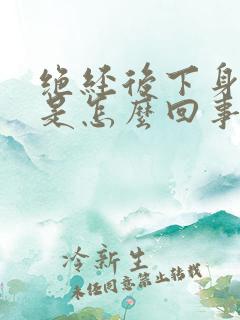 绝经后下身
是怎麼回事
冷新生
未经同意禁止转载